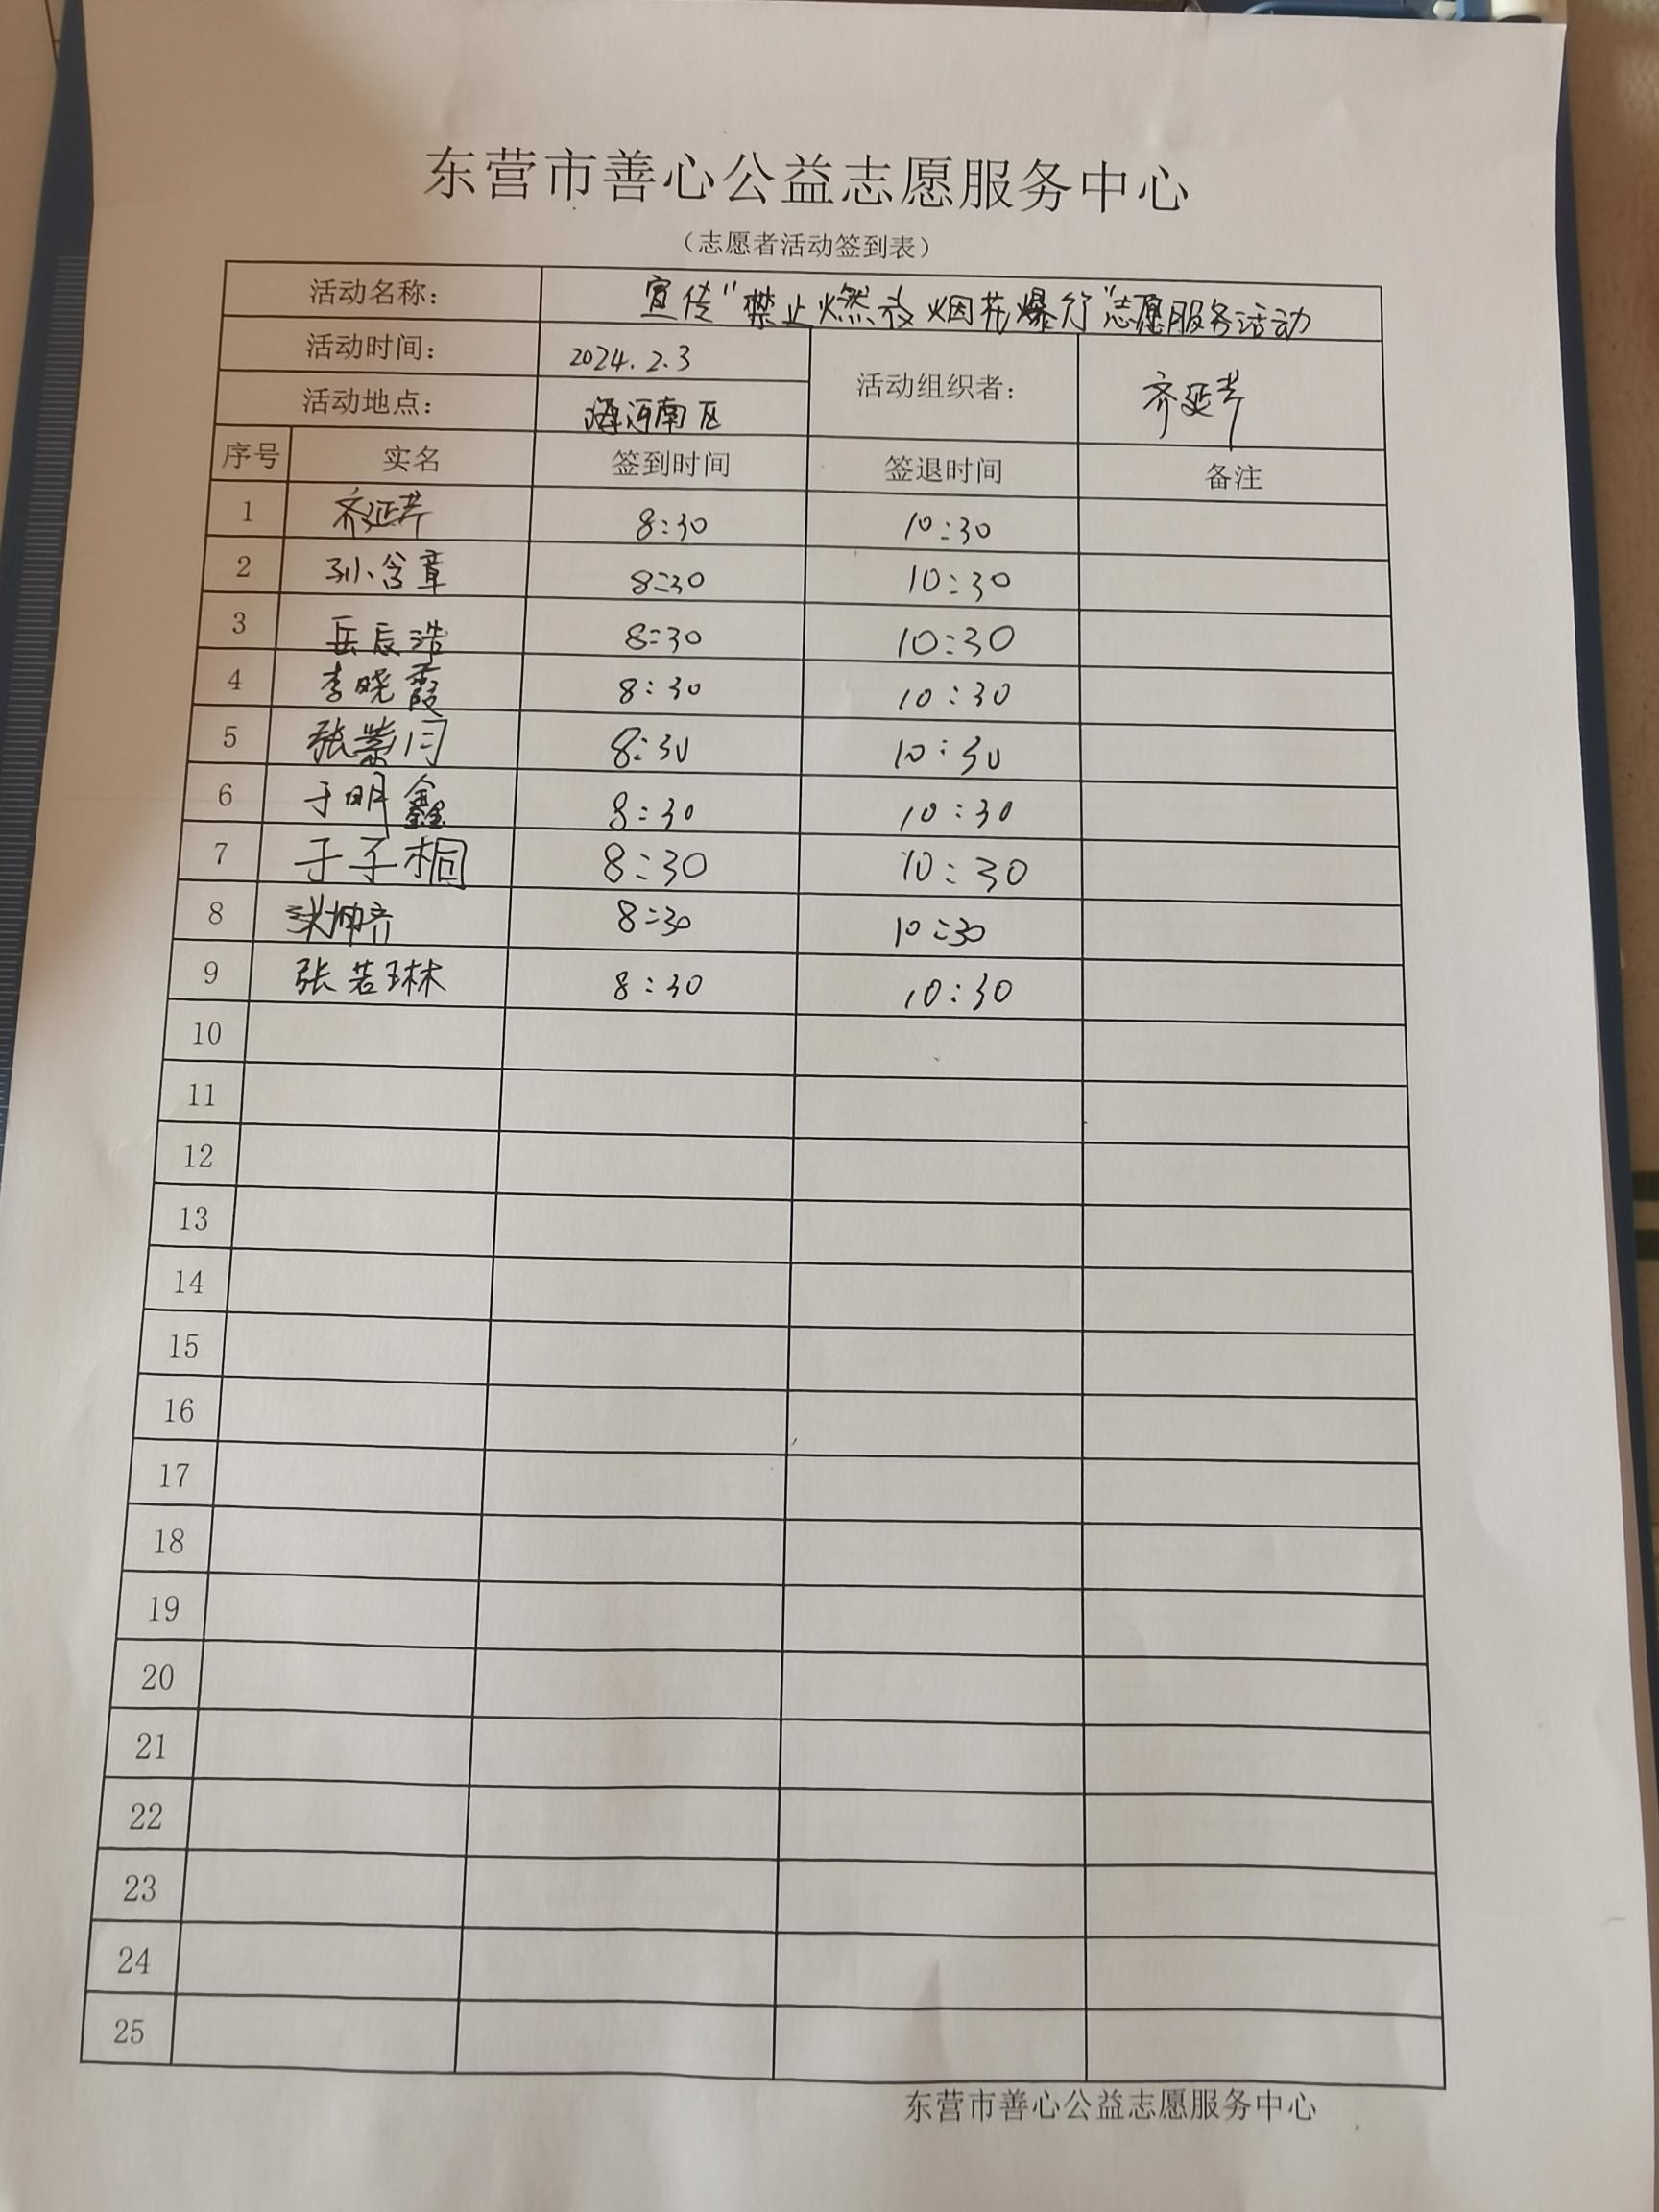 东营市善心公益志愿服务中心
（志愿者活动签到表）
活动名称： 宣传“禁止燃放烟花爆行”志愿服务活动
活动时间： 2024.2.3 活动组织者： 齐延芹
活动地点： 海河南区
序号 实名 签到时间 签退时间 备注
1 齐延芹 8:30 10:30
2 孙含章 8:30 10:30
3 岳辰浩 8:30 10:30
4 李晓霞 8:30 10:30
5 张紫闫 8:30 10:30
6 于明鑫 8:30 10:30
7 于子桐 8:30 10:30
8 8:30 10:30
9 张若琳 8:30 10:30
10
11
12
13
14
15
16
17
18
19
20
21
22
23
24
25
东营市善心公益志愿服务中心